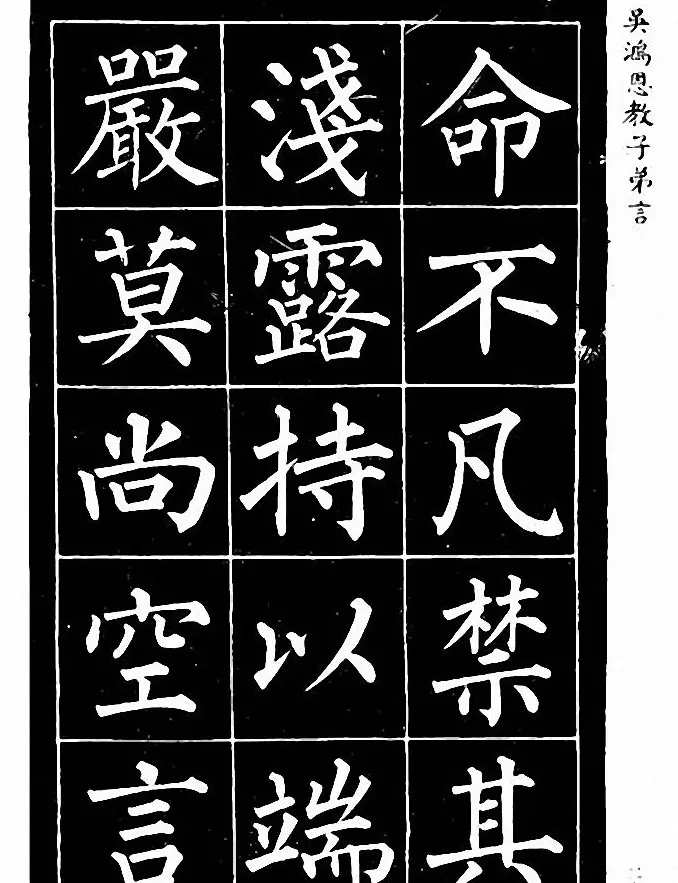 吳鴻恩教子弟言
命不凡禁其
淺露持以端
嚴莫尚空言